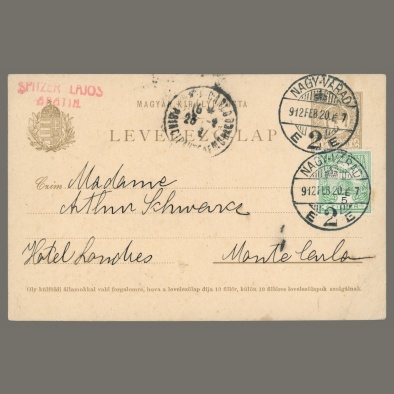 SPITZER LAJOS
MAGYAR KIRÁLYI POSTA
LEVELEZŐLAP
NAGY-VÁRAD
912 FEB 20. E 7
E 2 E
NAGY-VÁRAD
912 FEB 20. E 7
E 2 E
5
Czim Madame
Arthur Schwarz
Hôtel Londres Monte Carlo
Oly külföldi államokkal való forgalomban, hova a levelezőlap díja 10 fillér, külön 10 filléres levelezőlapok szolgálnak.